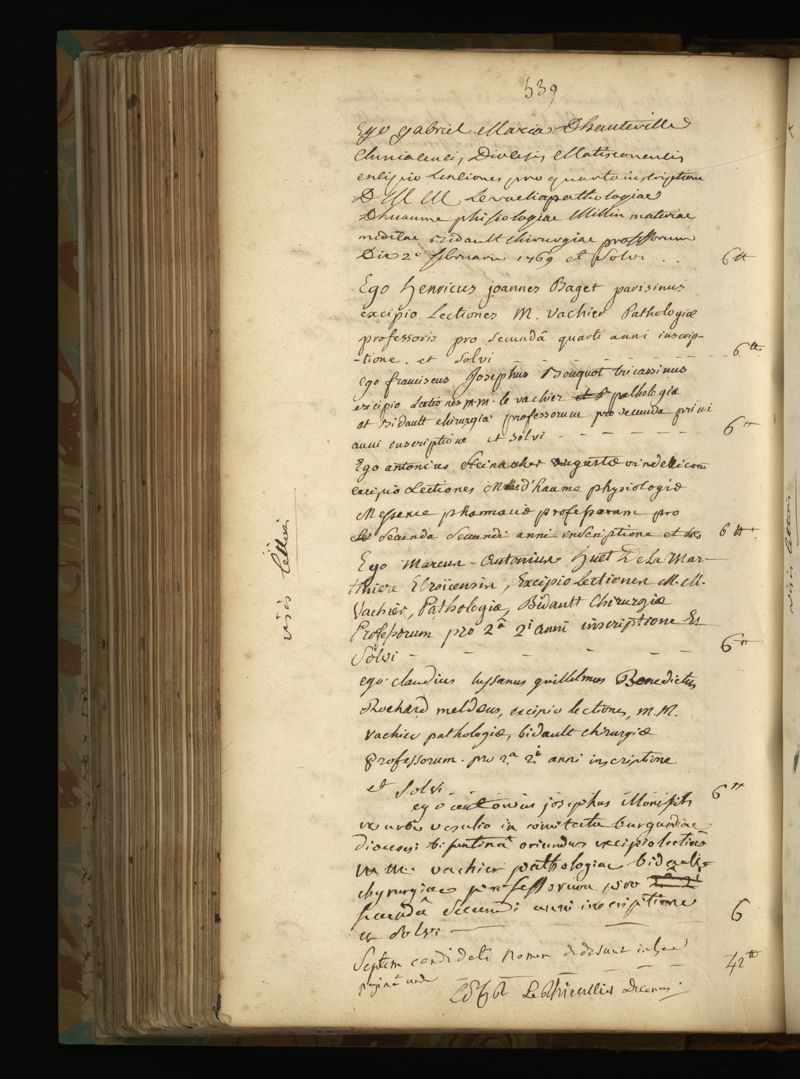 539
Ego Gabriel Maria Dhauteville
Cluniacensis, Diocesis Matisconensis
excipio Lectiones pro quarta inscriptione
D M M Levacher pathologiae
Dhuaume phisiologiae Millin materiae
medicae Bidault Chirurgiae professorum
Die 2a februarii 1769 et Solvi . . 6tt
Ego Henricus joannes Baget parisinus
excipio Lectiones M. Vachier Pathologiæ
professoris pro Secundâ quarti anni inscrip-
-tione. et Solvi - - - - - 6tt
ego franciscus Josephus Bouquot tricassinus
excipio Lectiones m.m. le vachier pathologiæ
et bidault chirurgiæ professorum pro Secunda primi
anni inscriptione et Solvi - - - - - 6tt
Ego antonius augustæ vindelicorum
excipio Lectiones d'haume physiologiæ
pharmaciæ professorum pro
Secunda Secundi anni inscriptione et 6tt
Ego Marcus-Antonius Huet De La Mar-
tiniere Ebroicensis, Excipio Lectiones M.M.
Vachier, Pathologiæ, Bidault Chirurgiæ
Professorum pro 2â 2i anni inscriptione Et
Solvi - - - - - 6tt
ego claudius guillelmus Benedictus
Rochard meldæus, excipio lectiones, M.M.
Vachier pathologiæ, bidault chirurgiæ
Professorum. pro 2.a 2.i anni inscriptione
et Solvi - 6tt
ego antonius josephus
ex urbe vesulio in comitatu burgundiae
diocesi bisuntinâ oriundus excipio lectiones
m m. vachier pathologiae bidault
chyrurgiae professorum pro
secundâ Secundi anni inscriptione
et Solvi - 6
Septem candidati nomen dederunt in hac
paginâ unde - - - 42tt
LeThieullier Decanus.
visis litteris
visis litteris